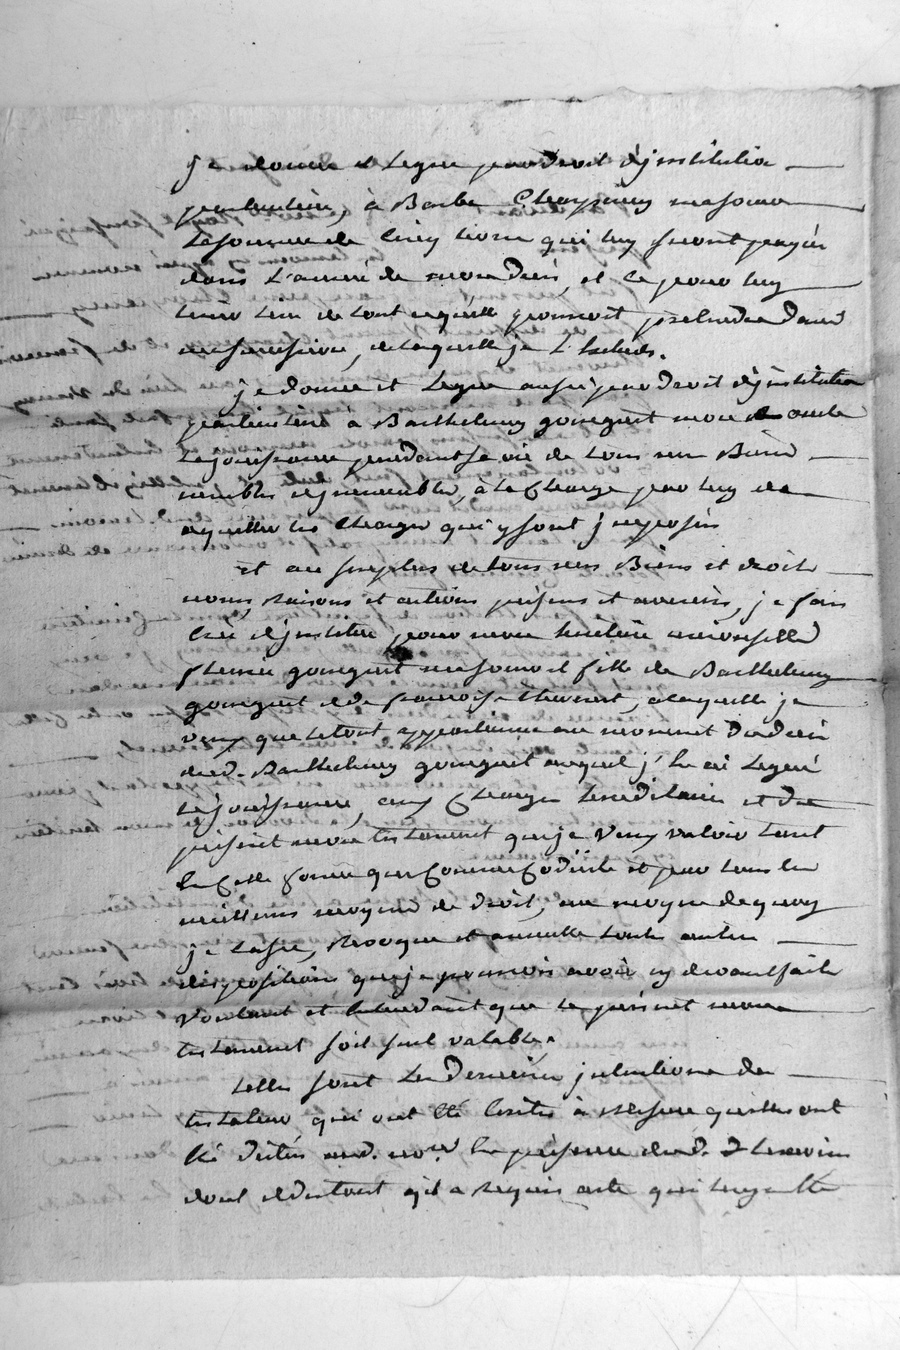 je donne et legue par droit d'jnstitution
particuliere, à Barbe Chaypieuy ma soeur
la somme de Cinq livres qui luy seront payés
dans l'année de mon décés, et ce pour luy
tenir lieu de tout ce qu'elle pourroit prétendre dans
ma succession, de laquelle je l'Exclus.
je donne et legue aussi par droit d'jnstitution
particuliere à Barthelemy gonguet mon oncle
la jouissance pendant sa vie de tous mes Biens
meubles et jmmeubles, à la Charge par luy de
aquitter les charges qui y sont jmposées
et au surplus de tous mes Biens et droits
noms, raisons et actions présens et avenirs, je fais
Créé et jnstitue pour mon héritière universelle
gonguet ma soeur et fille de Barthelemy
gonguet et de françoise thevenet, à laquelle je
veux que le tout appartienne au moment du décés
dud. Barthelemy gonguet auquel j'En ai legué
la jouissance, aux Charges hereditaires et du
présent mon testament que je veux valoir tant
En Cette forme que Comme Codicile et par tous les
meilleurs moyens de droit, au moyen de quoy
je Casse, Revoque et annulle toutes autres
dispositions que je pourrois avoir cy devant faites
voulant et Entendant que le présent mon
testament soit seul valable.
telles sont les dernières jntentions du
testateur qui ont été Ecrites à mesure qu'elles ont
été dictées aud. no.re En présence desd. 7 temoins
dont et du tout il a requis acte qui luy a été